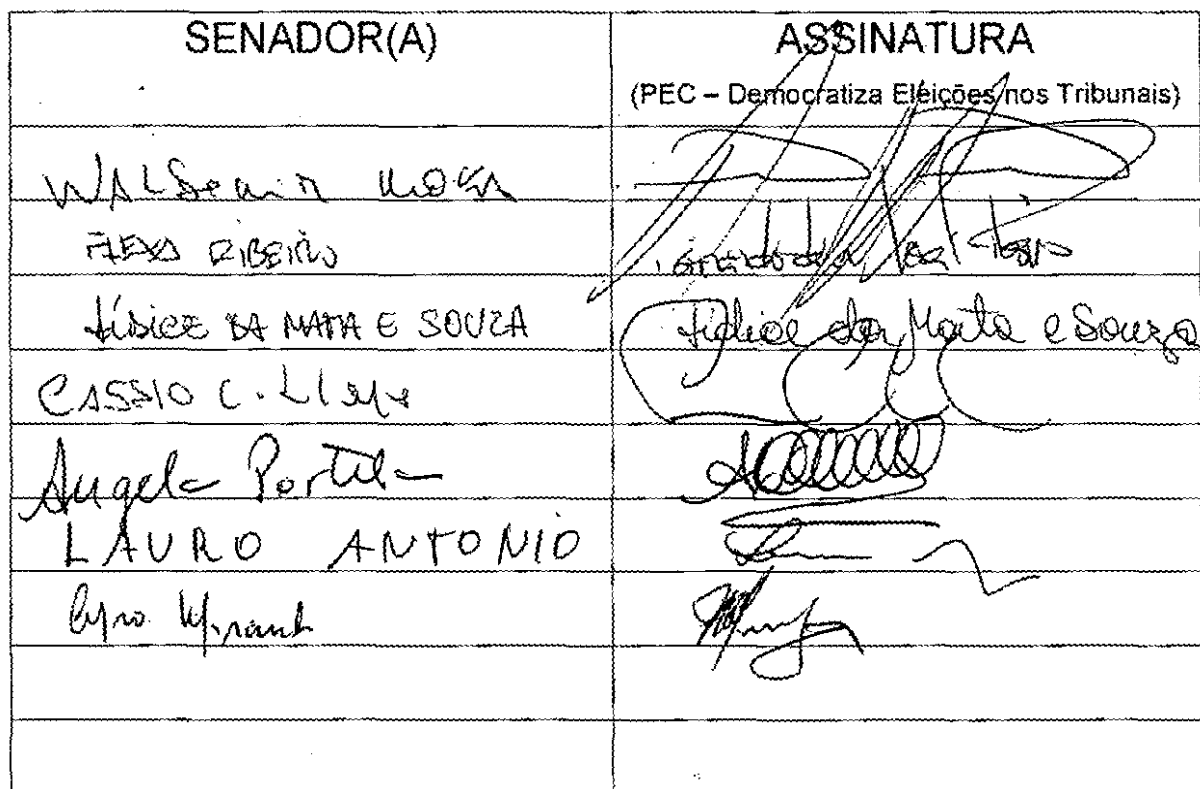 SENADOR(A)
ASSINATURA
(PEC – Democratiza Eleições nos Tribunais)
WALDEMIR MOKA
FLEXA RIBEIRO
LÍDICE DA MATA E SOUZA
Lídice da Mata e Souza
CASSIO C. LIMA
Angela Portela
LAURO ANTONIO
Cyro Miranda